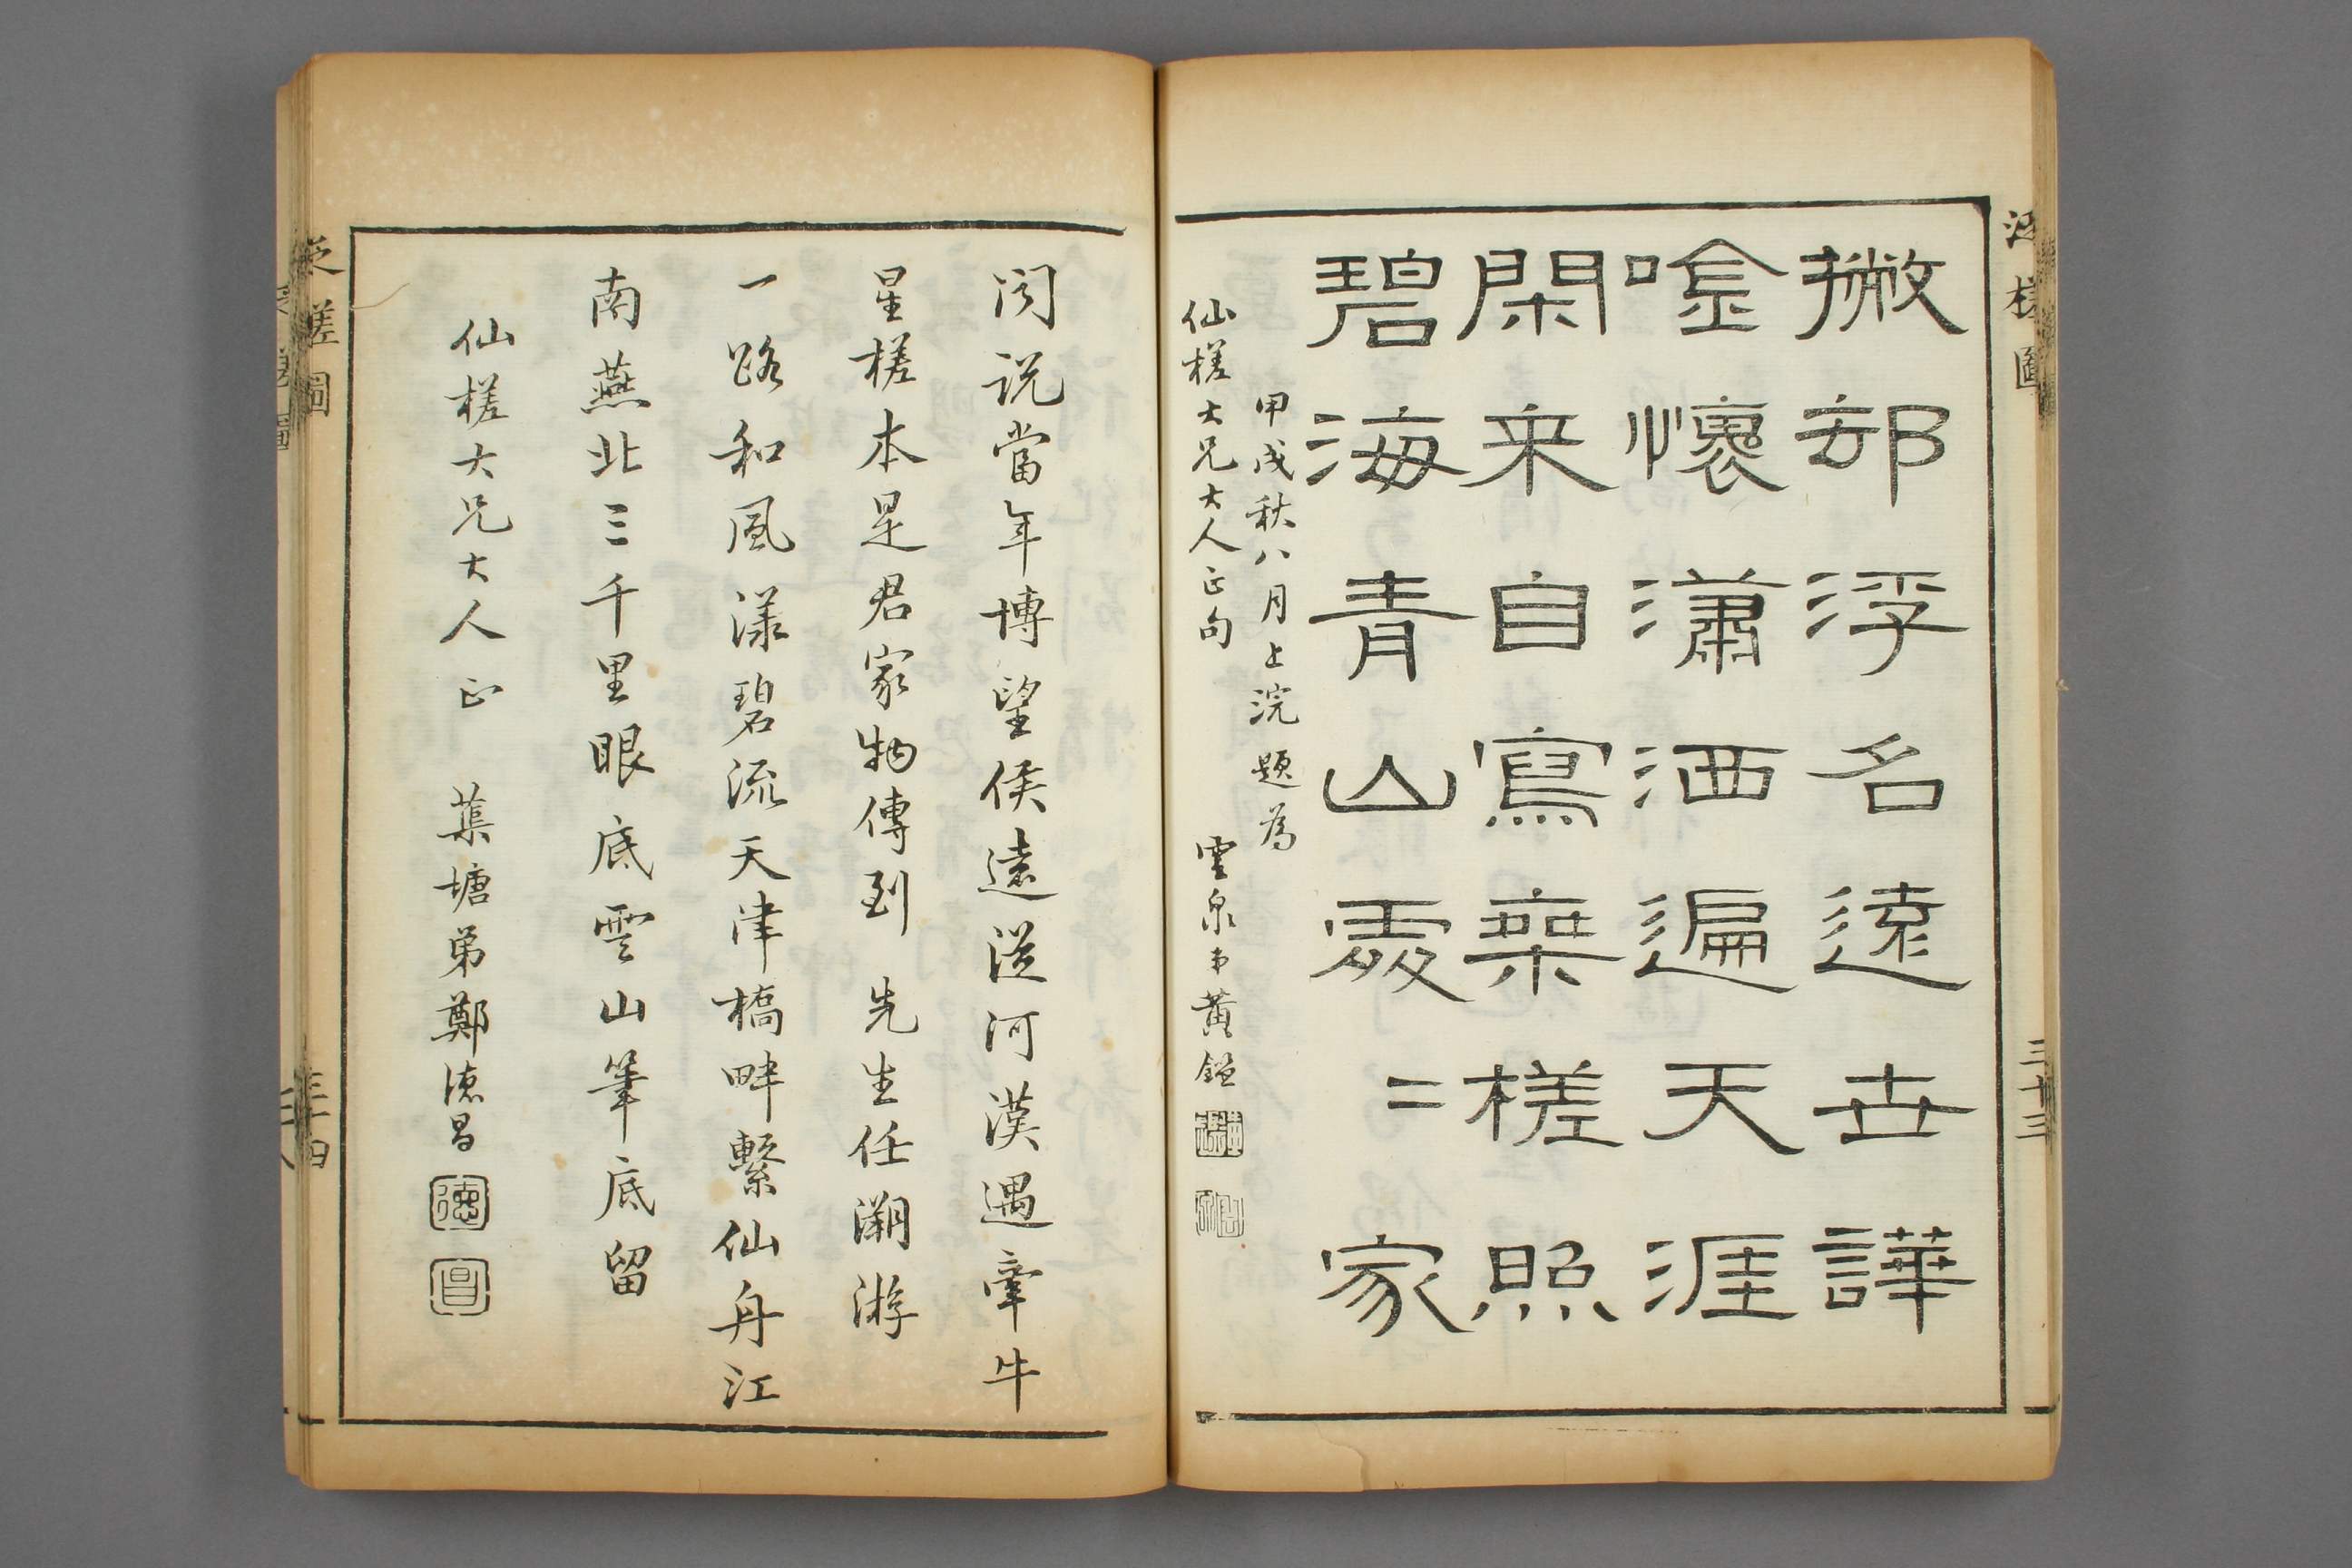 撇却浮名遠世譁
唫懷瀟洒遍天涯
閑来自寫乘槎照
碧海青山處〻家
甲戌秋八月上浣題為
仙槎大兄大人正句
雲泉弟黃鎧
泛槎圖
三十三
聞説當年博望侯遠從河漢遇牽牛
星槎本是君家物傳到 先生任溯游
一路和風漾碧流天津橋畔繫仙舟江
南燕北三千里眼底雲山筆底留
仙槎大兄大人正 蕉塘弟鄭德昌
德
昌
泛槎圖
三十四